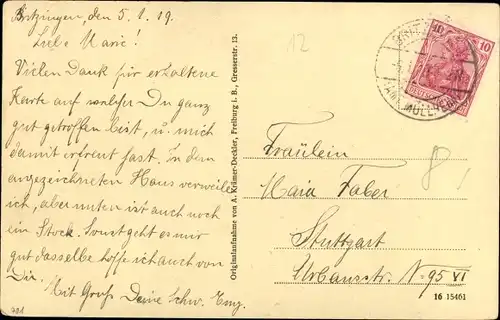 Britzingen, den 5. 1. 19.
Liebe Marie!
Vielen Dank für erhaltene
Karte auf welcher Du ganz
gut getroffen bist, u. mich
damit erfreut hast. In dem
angezeichneten Haus verweile
ich, aber unten ist auch noch
ein Stock. Sonst geht es mir
gut dasselbe hoffe ich auch von
Dir.
Mit Gruß Deine Schw. Emy.
Originalaufnahme von A. Krämer-Deckler, Freiburg i. B., Gresserstr. 13.
12
10 10
(AMT MÜLLHEIM)
Fräulein
Maria Faber
Stuttgart
Urbansstr. No 95 VI
8
16 15461